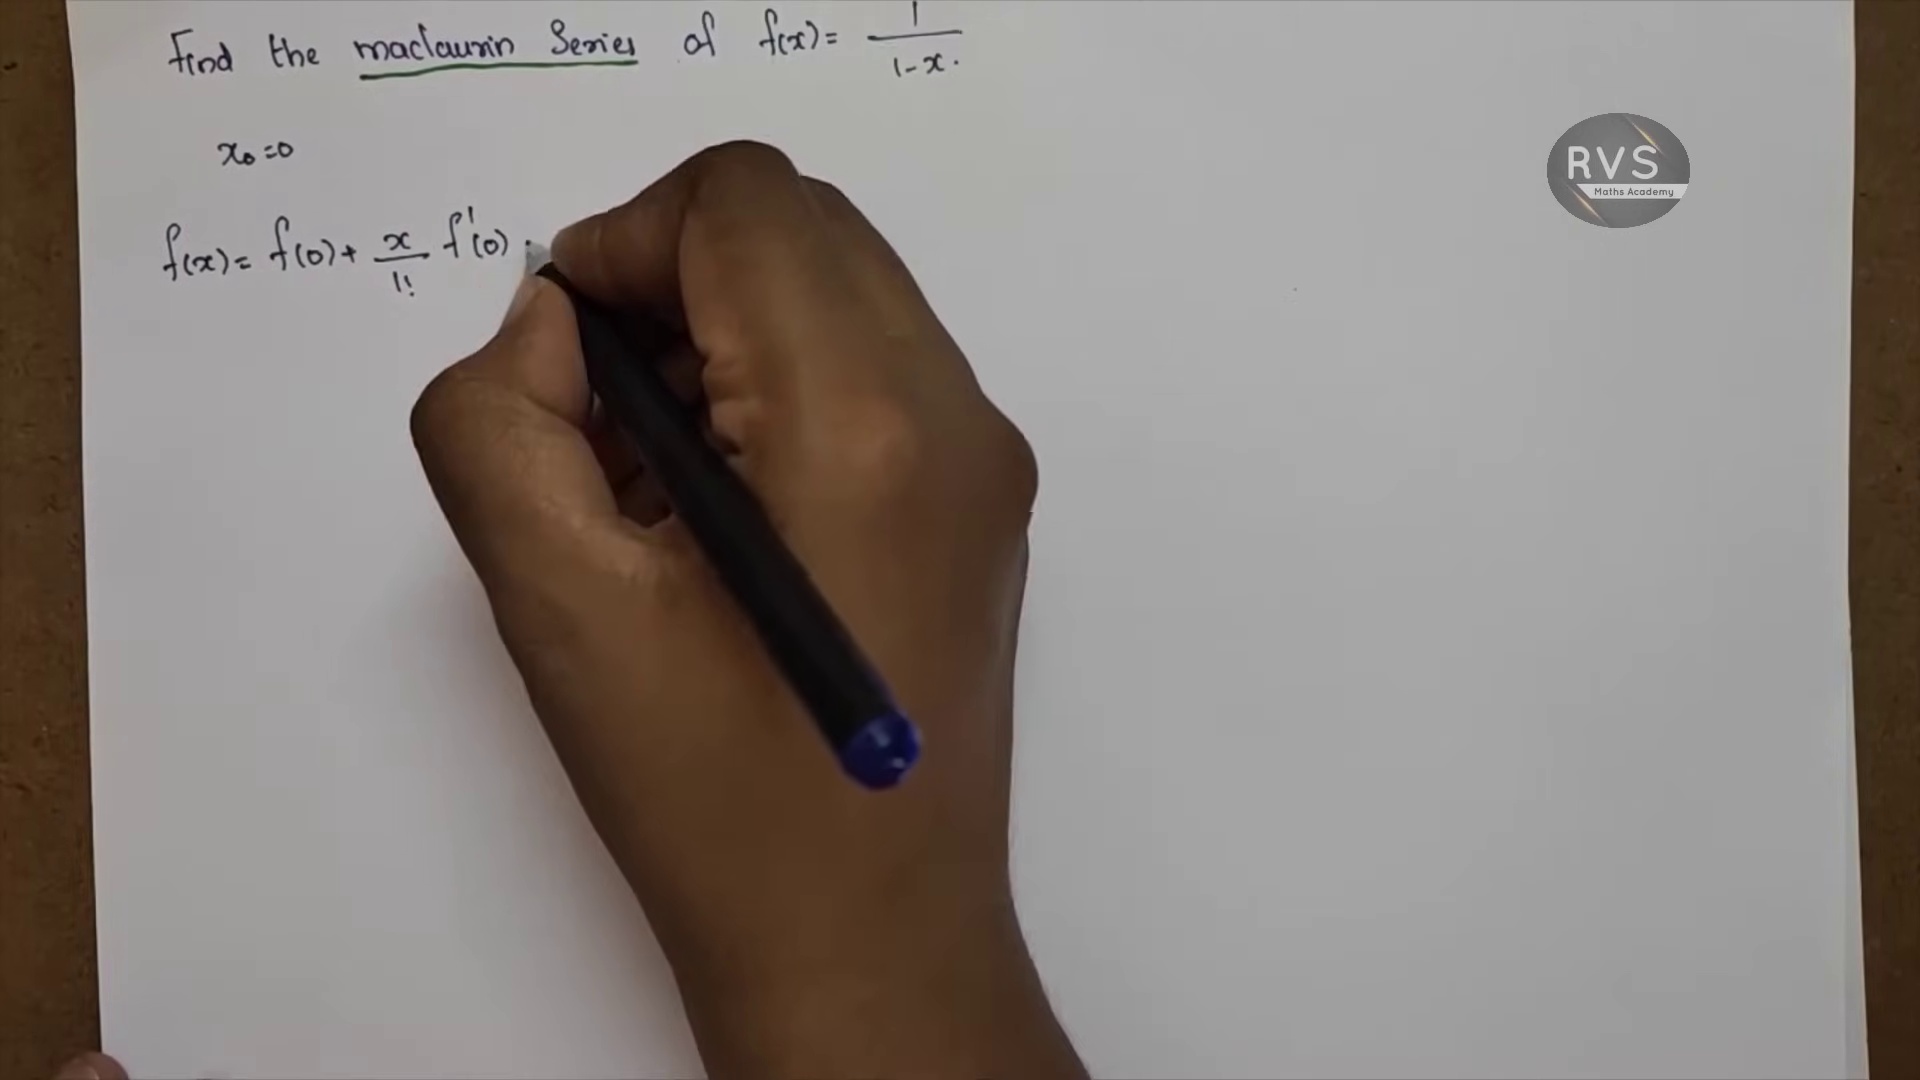 Find the maclaurin Series of f(x) = 1/1-x.
x₀=0
f(x) = f(0) + x/1! f'(0)
RVS
Maths Academy